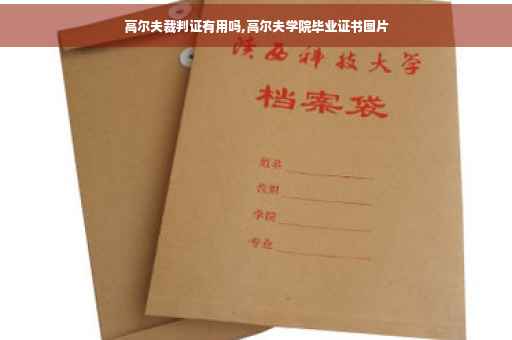 高尔夫裁判证有用吗,高尔夫学院毕业证书图片
陕西科技大学
档案袋
姓名
学院
专业